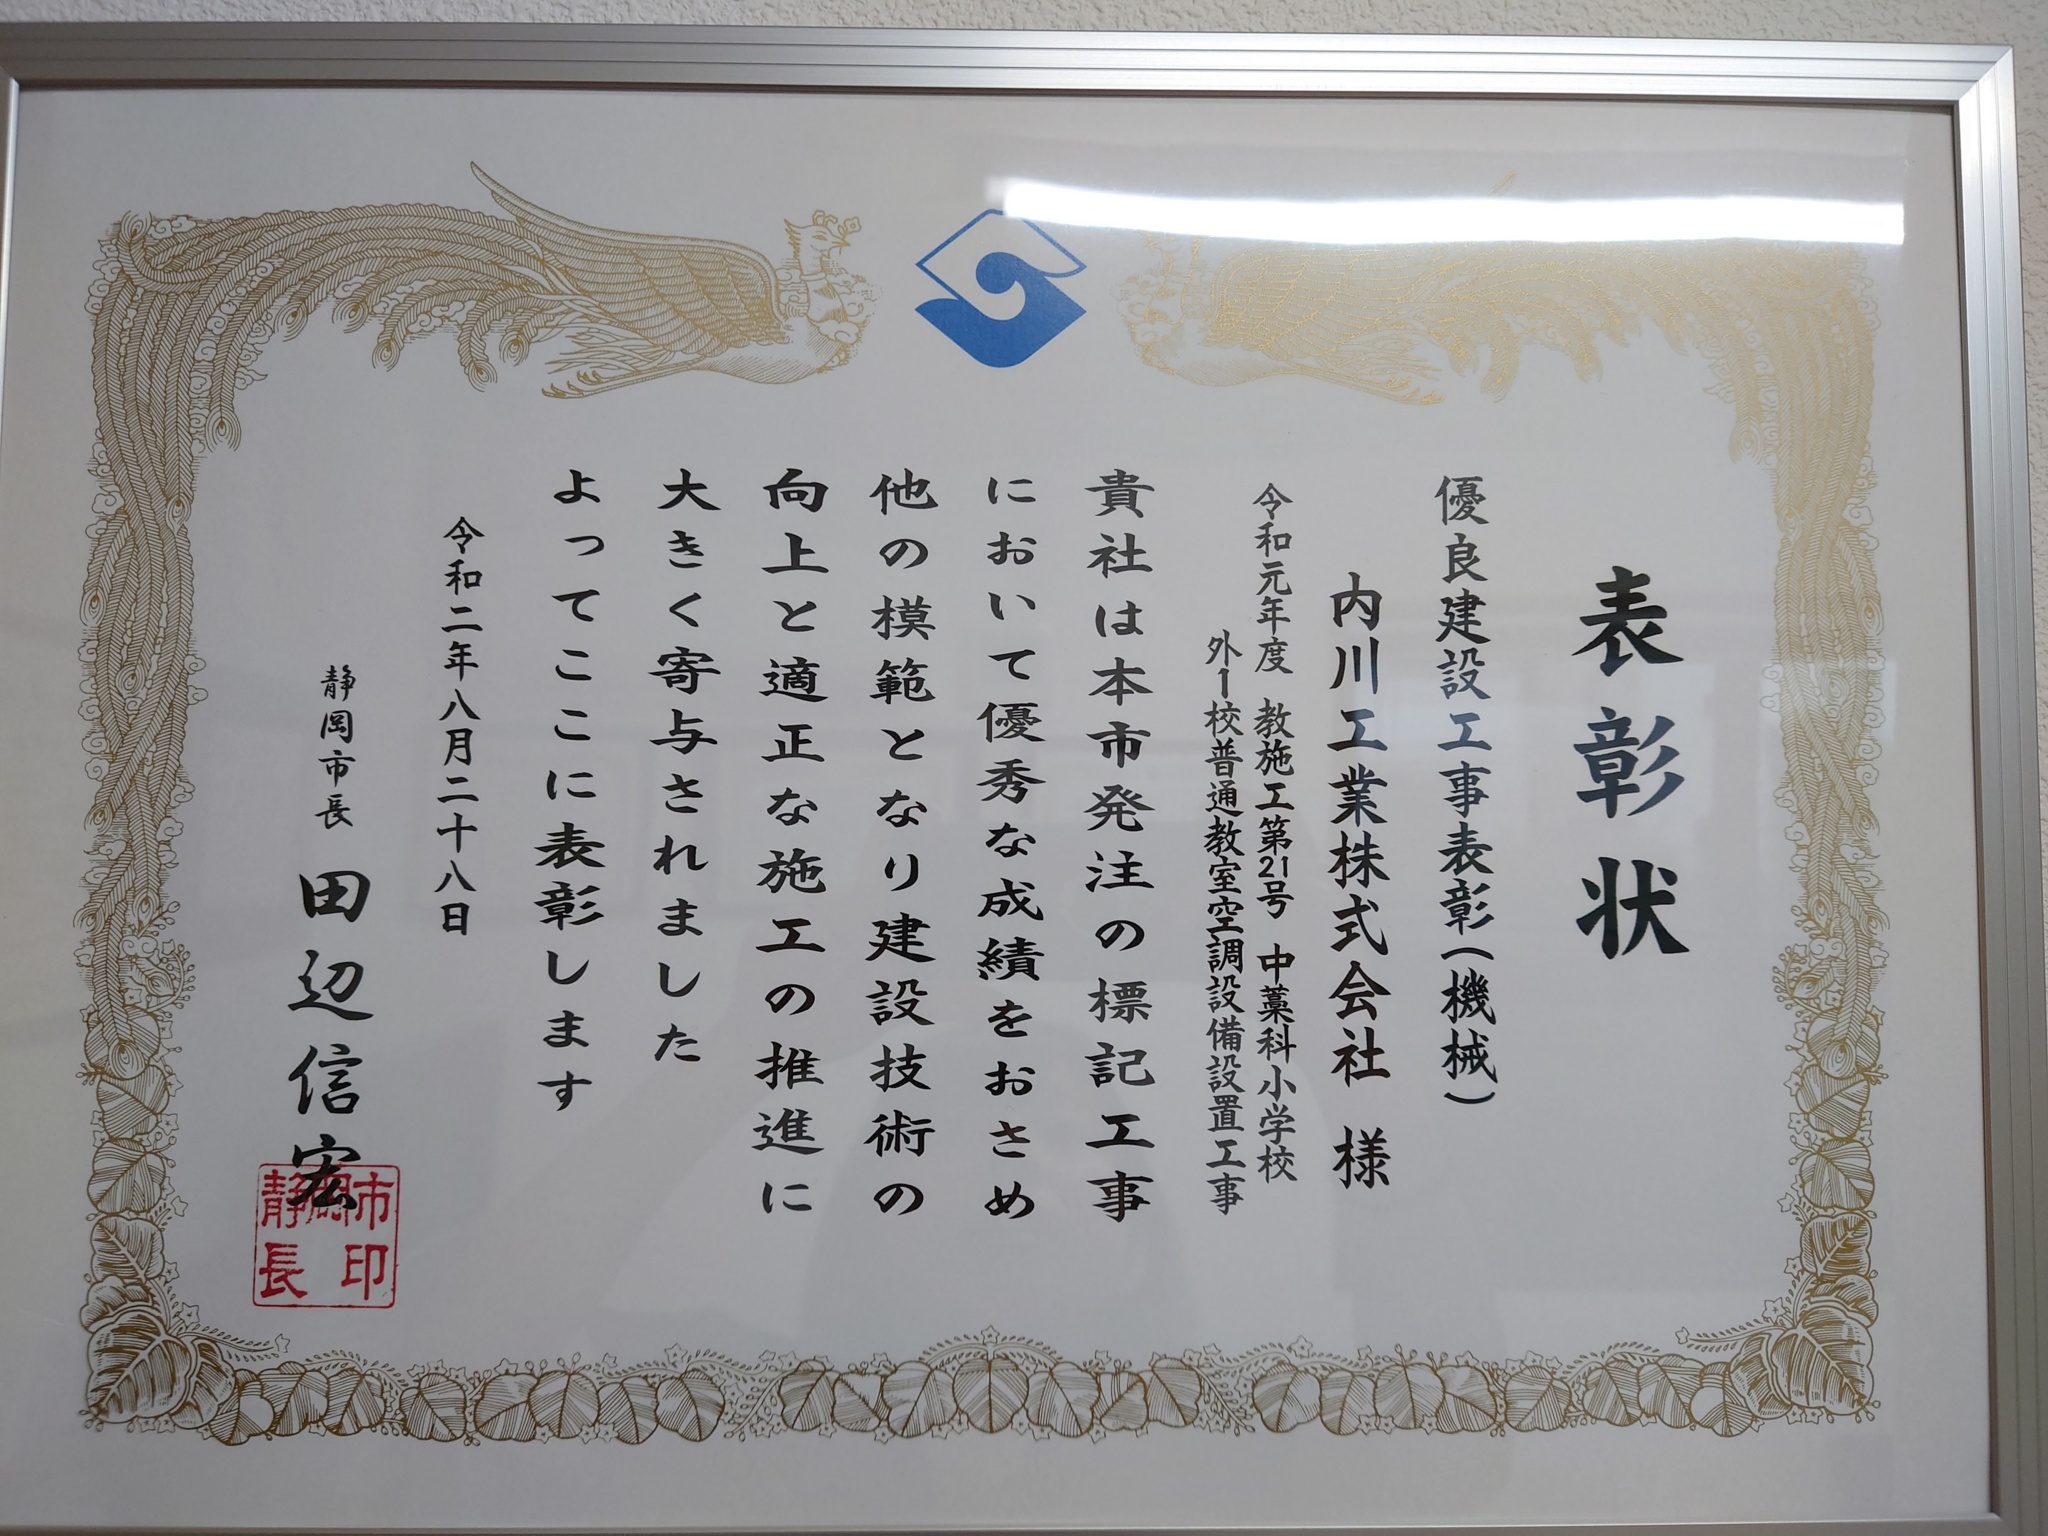 表彰状
優良建設工事表彰(機械)
内川工業株式会社 様
令和元年度 教施工第21号 中藁科小学校
外1校普通教室空調設備設置工事
貴社は本市発注の標記工事
において優秀な成績をおさめ
他の模範となり建設技術の
向上と適正な施工の推進に
大きく寄与されました
よってここに表彰します
令和二年八月二十八日
静岡市長 田辺信宏
静岡市長印